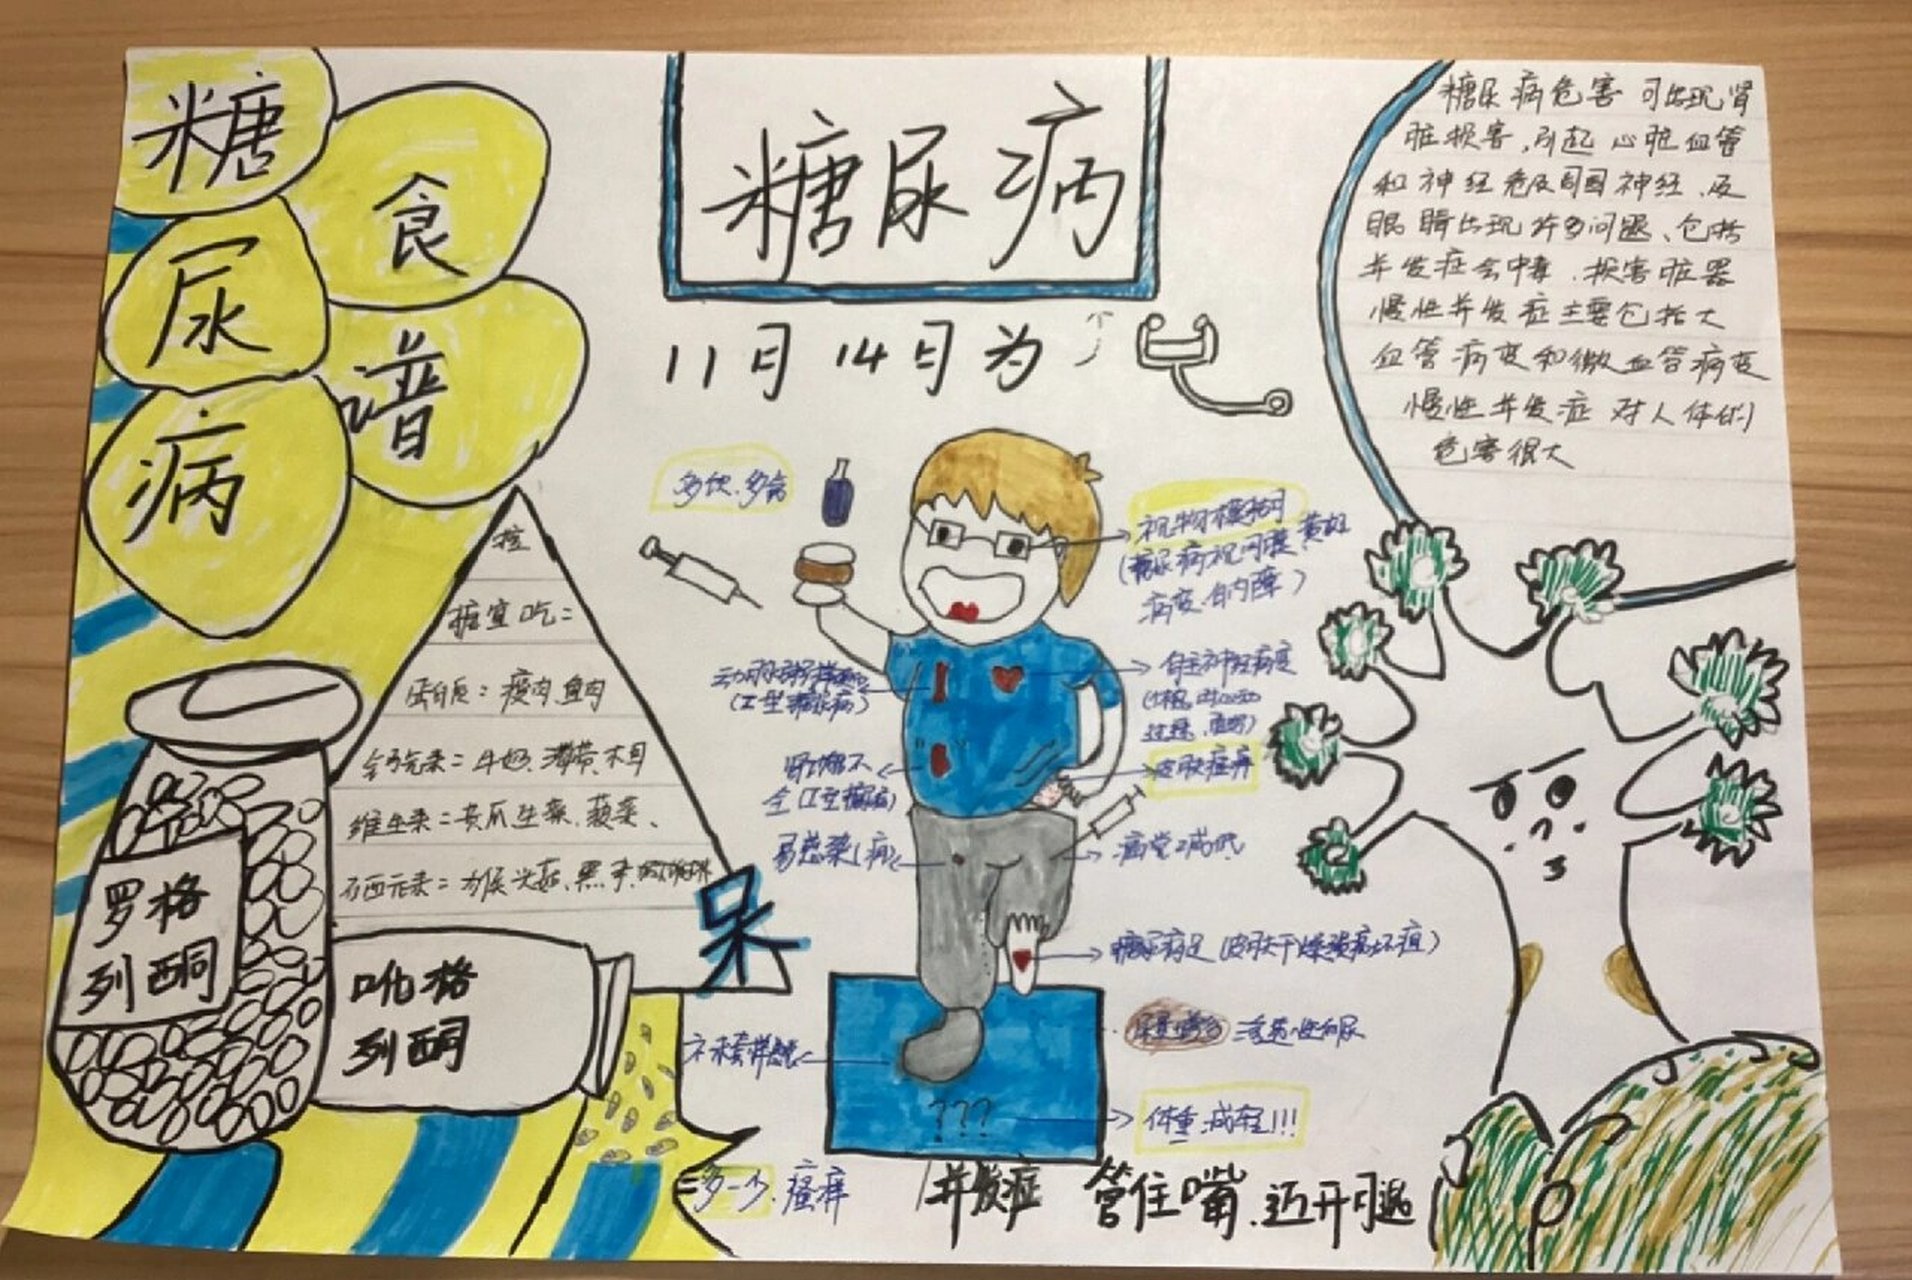 糖
尿
病
食
谱
糖尿病
11月14日为
糖尿病危害 可出现肾
脏损害,引起 心脏血管
和神经危及周围神经、及
眼睛出现许多问题、包括
并发症会中毒、损害脏器
慢性并发症主要包括大
血管病变和微血管病变
慢性并发症 对人体的
危害很大
控
糖宜吃:
蛋白质:瘦肉、鱼肉
含钙元素:牛奶、海带、木耳
维生素:黄瓜 生菜、菠菜、
含硒元素:
罗格
列酮
吡格
列酮
多饮、多食
视物模糊
(糖尿病视网膜、黄斑
病变、白内障)
自主神经病变
动脉粥样硬化
(II型糖尿病)
肾功能不
全(II型糖尿病)
皮肤瘙痒
易感染(病)
痛觉减低
糖尿病足(皮肤干燥
渗透性利尿
???
体重减轻!!!
三多一少、瘙痒
并发症
管住嘴、迈开腿